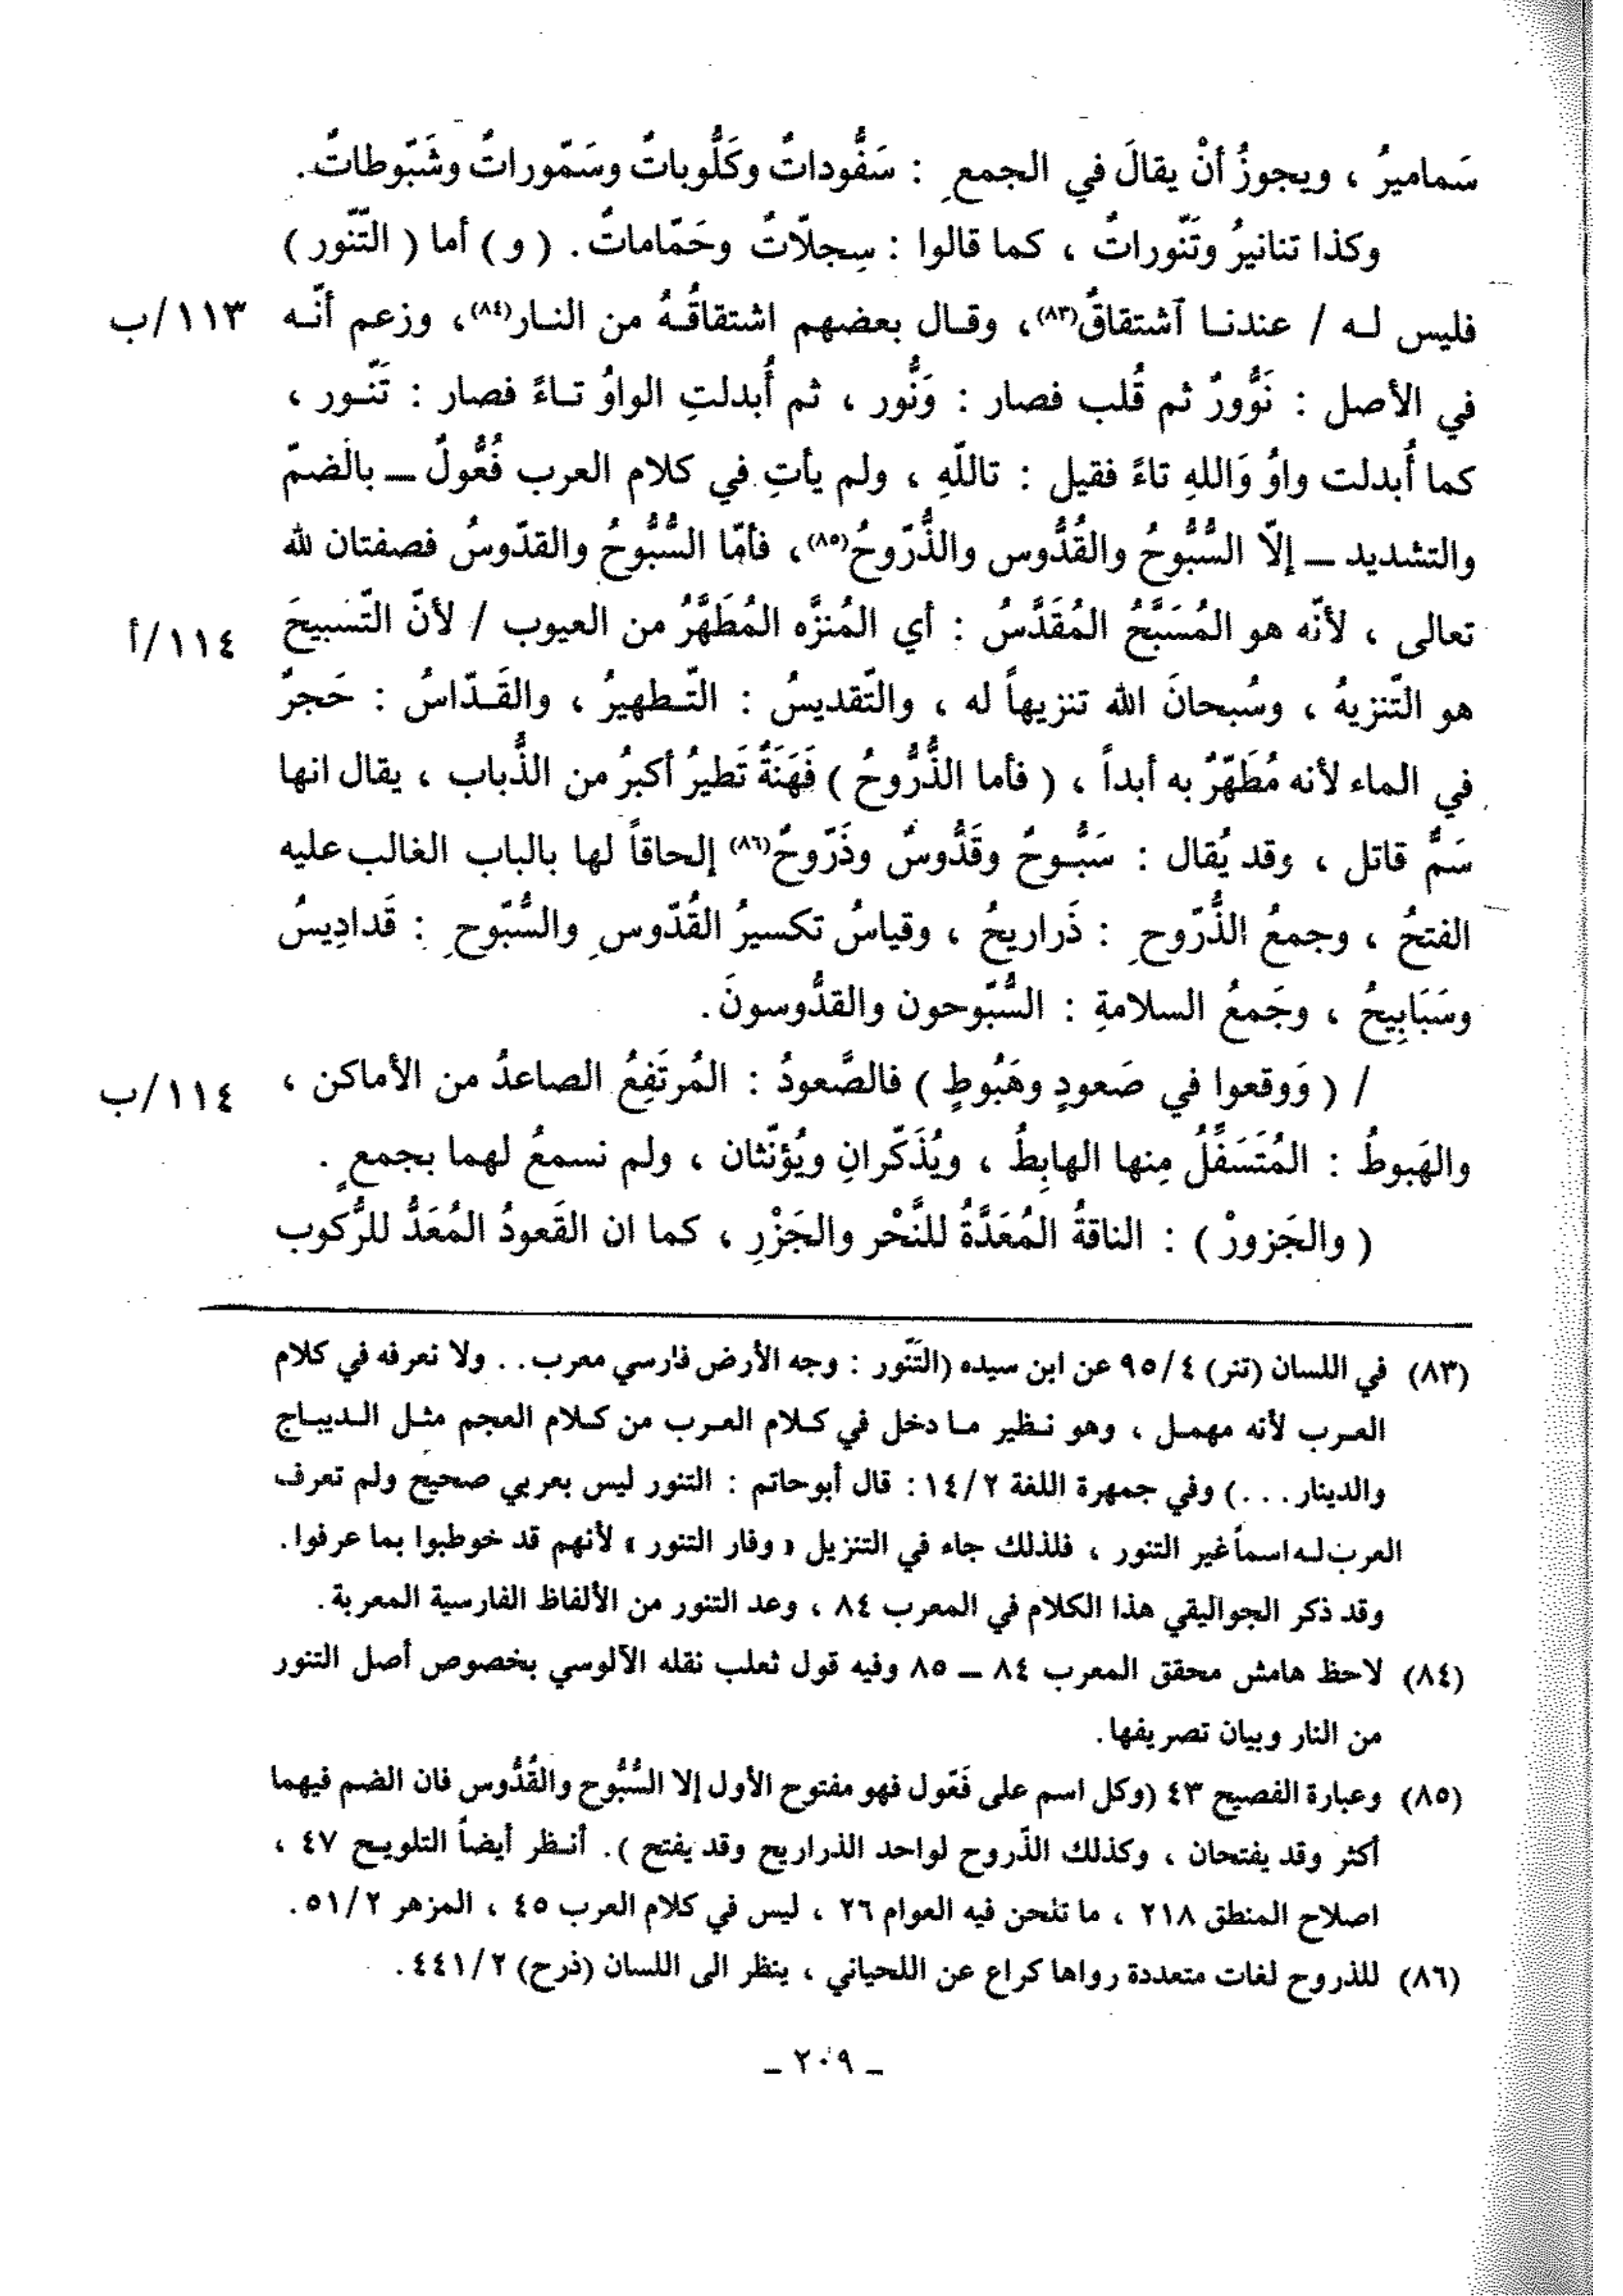 سَماميرُ ، ويجوزُ أنْ يقالَ في الجمعِ : سَفُّوداتٌ وكَلُّوباتٌ وسَمّوراتٌ وشَبّوطاتٌ.
وكذا تنانيرُ وتَنّوراتٌ ، كما قالوا : سِجلّاتٌ وحَمّاماتٌ. ( و ) أما ( التّنّور )
فليس لـه / عندنـا آشتقاقٌ(٨٣)، وقـال بعضهم اشتقاقُـهُ من النـار(٨٤)، وزعم أنّـه ١١٣/ب
في الأصل : نَوُّورٌ ثم قُلب فصار : وَنُّور ، ثم أُبدلتِ الواوُ تـاءً فصار : تَنّـور ،
كما أُبدلت واوُ وَاللهِ تاءً فقيل : تاللّهِ ، ولم يأتِ في كلام العرب فُعُّولٌ ــ بالضمّ
والتشديد ــ إلّا السُّبُّوحُ والقُدُّوس والذُّرّوحُ(٨٥)، فأمّا السُّبُّوحُ والقدّوسُ فصفتان لله
تعالى ، لأنّه هو المُسَبَّحُ المُقَدَّسُ : أي المُنزَّه المُطَهَّرُ من العيوب / لأنّ التّسبيحَ ١١٤/أ
هو التّنزيهُ ، وسُبحانَ الله تنزيهاً له ، والتّقديسُ : التّـطهيرُ ، والقَـدّاسُ : حَجرٌ
في الماء لأنه مُطَهّرٌ به أبداً ، ( فأما الذُّرُّوحُ ) فَهَنَةٌ تَطيرُ أكبرُ من الذُّباب ، يقال انها
سَمٌّ قاتل ، وقد يُقال : سَبُّـوحٌ وقَدُّوسٌ وذَرّوحٌ(٨٦) إلحاقاً لها بالباب الغالب عليه
الفتحُ ، وجمعُ الذُّرّوحِ : ذَراريحُ ، وقياسُ تكسيرُ القُدّوسِ والسُّبّوحِ : قَدادِيسُ
وسَبَابِيحُ ، وجَمعُ السلامةِ : السُّبّوحون والقدُّوسونَ.
/ ( وَوقعوا في صَعودٍ وهَبُوطٍ ) فالصَّعودُ : المُرتَفِعُ الصاعدُ من الأماكن ، ١١٤/ب
والهَبوطُ : المُتَسَفِّلُ مِنها الهابِطُ ، ويُذَكّرانِ ويُؤنّثان ، ولم نسمعُ لهما بجمعٍ .
( والجَزورْ ) : الناقةُ المُعَدَّةُ للنَّحْر والجَزْرِ ، كما ان القَعودُ المُعَدُّ للرُّكوب
(٨٣) في اللسان (تنر) ٩٥/٤ عن ابن سيده (التَنّور : وجه الأرض فارسي معرب.. ولا نعرفه في كلام
العـرب لأنه مهمـل ، وهو نـظير مـا دخل في كـلام العـرب من كـلام العجم مثـل الـديبـاج
والدينار...) وفي جمهرة اللغة ١٤/٢ : قال أبوحاتم : التنور ليس بعربي صحيح ولم تعرف
العرب لـه اسماً غير التنور ، فلذلك جاء في التنزيل « وفار التنور » لأنهم قد خوطبوا بما عرفوا.
وقد ذكر الجواليقي هذا الكلام في المعرب ٨٤ ، وعد التنور من الألفاظ الفارسية المعربة.
(٨٤) لاحظ هامش محقق المعرب ٨٤ ــ ٨٥ وفيه قول ثعلب نقله الآلوسي بخصوص أصل التنور
من النار وبيان تصريفها.
(٨٥) وعبارة الفصيح ٤٣ (وكل اسم على فَعّول فهو مفتوح الأول إلا السُّبُّوح والقُدُّوس فان الضم فيهما
أكثر وقد يفتحان ، وكذلك الذّروح لواحد الذراريح وقد يفتح ). أنـظر أيضاً التلويـح ٤٧ ،
اصلاح المنطق ٢١٨ ، ما تلحن فيه العوام ٢٦ ، ليس في كلام العرب ٤٥ ، المزهر ٥١/٢.
(٨٦) للذروح لغات متعددة رواها كراع عن اللحياني ، ينظر الى اللسان (ذرح) ٤٤١/٢.
ـ ٢٠٩ ـ